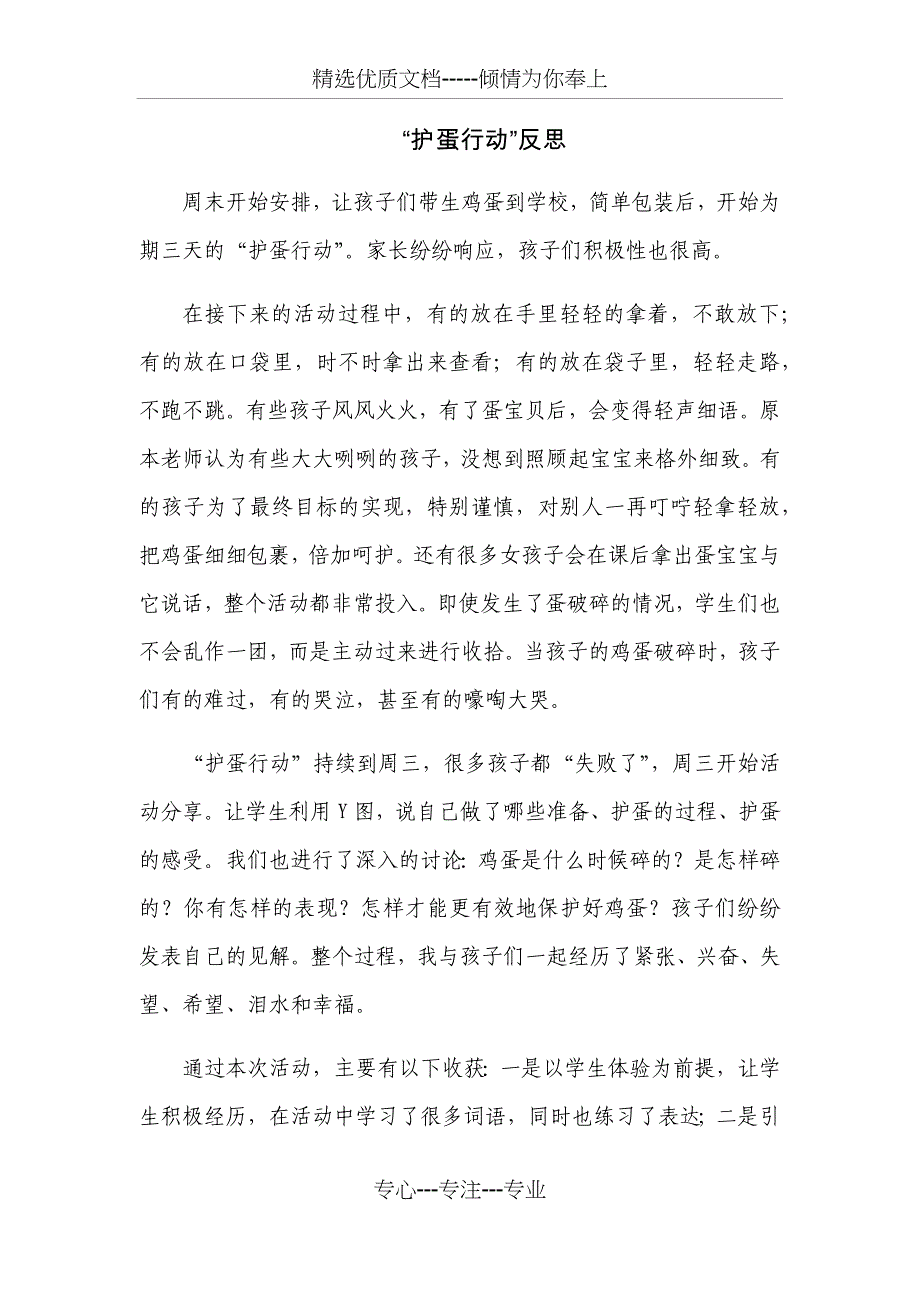 精选优质文档-----倾情为你奉上
“护蛋行动”反思
周末开始安排，让孩子们带生鸡蛋到学校，简单包装后，开始为
期三天的“护蛋行动”。家长纷纷响应，孩子们积极性也很高。
在接下来的活动过程中，有的放在手里轻轻的拿着，不敢放下；
有的放在口袋里，时不时拿出来查看；有的放在袋子里，轻轻走路，
不跑不跳。有些孩子风风火火，有了蛋宝贝后，会变得轻声细语。原
本老师认为有些大大咧咧的孩子，没想到照顾起宝宝来格外细致。有
的孩子为了最终目标的实现，特别谨慎，对别人一再叮咛轻拿轻放，
把鸡蛋细细包裹，倍加呵护。还有很多女孩子会在课后拿出蛋宝宝与
它说话，整个活动都非常投入。即使发生了蛋破碎的情况，学生们也
不会乱作一团，而是主动过来进行收拾。当孩子的鸡蛋破碎时，孩子
们有的难过，有的哭泣，甚至有的嚎啕大哭。
“护蛋行动”持续到周三，很多孩子都“失败了”，周三开始活
动分享。让学生利用 Y 图，说自己做了哪些准备、护蛋的过程、护蛋
的感受。我们也进行了深入的讨论：鸡蛋是什么时候碎的？是怎样碎
的？你有怎样的表现？怎样才能更有效地保护好鸡蛋？孩子们纷纷
发表自己的见解。整个过程，我与孩子们一起经历了紧张、兴奋、失
望、希望、泪水和幸福。
通过本次活动，主要有以下收获：一是以学生体验为前提，让学
生积极经历，在活动中学习了很多词语，同时也练习了表达；二是引
专心---专注---专业